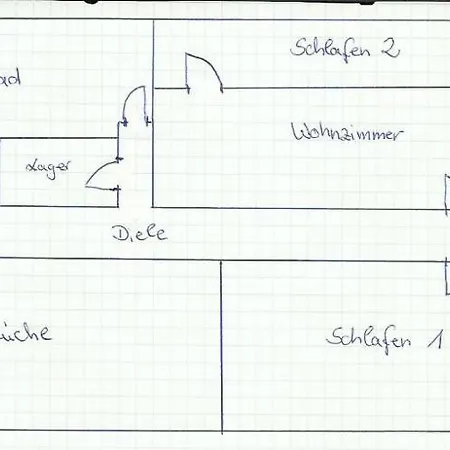 Schlafen 2
ad
Wohnzimmer
Lager
Diele
üche
Schlafen 1